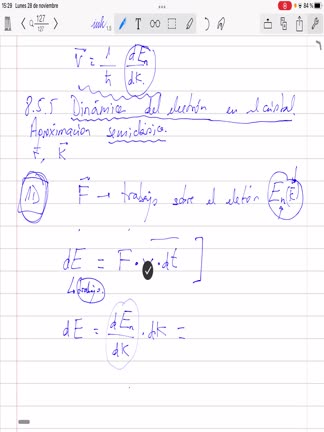 15:29 Lunes 28 de noviembre
84 %
127
127
1.5
v⃗ = 1/ħ dEn/dK.
8.5.5 Dinámica del electrón en el cristal.
Aproximación semiclásica.
r⃗, K⃗
1D F⃗ → trabajo sobre el eletón En(k⃗)
dE = F · v · dt ]
↳ trabajo.
dE = dEn/dK · dK =